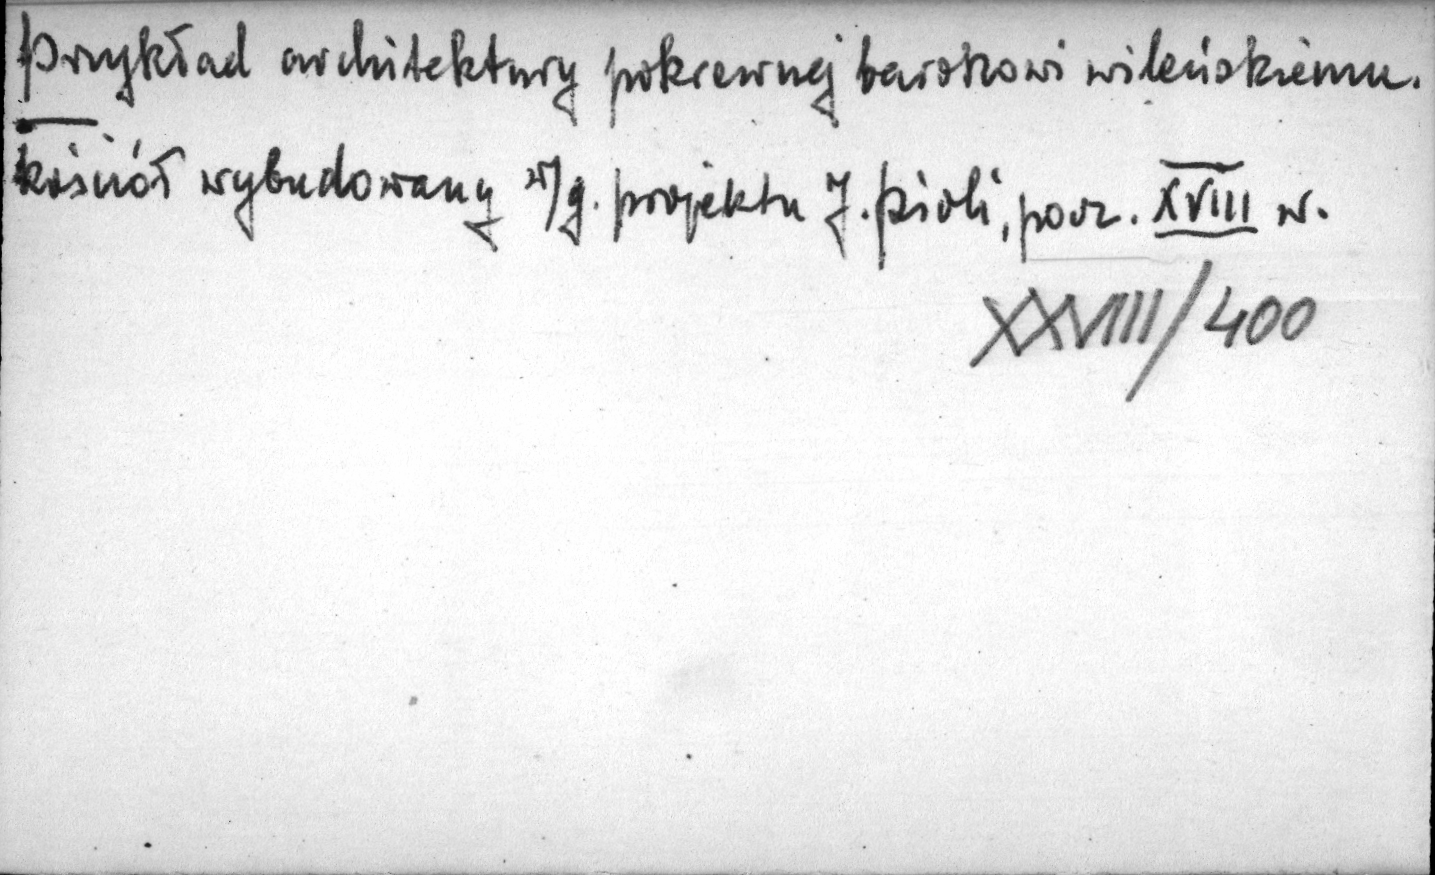 Przykład architektury pokrewnej barokowi wileńskiemu.
Kościół wybudowany w/g. projektu J. Pioli, pocz. XVIII w.
XXVIII/400